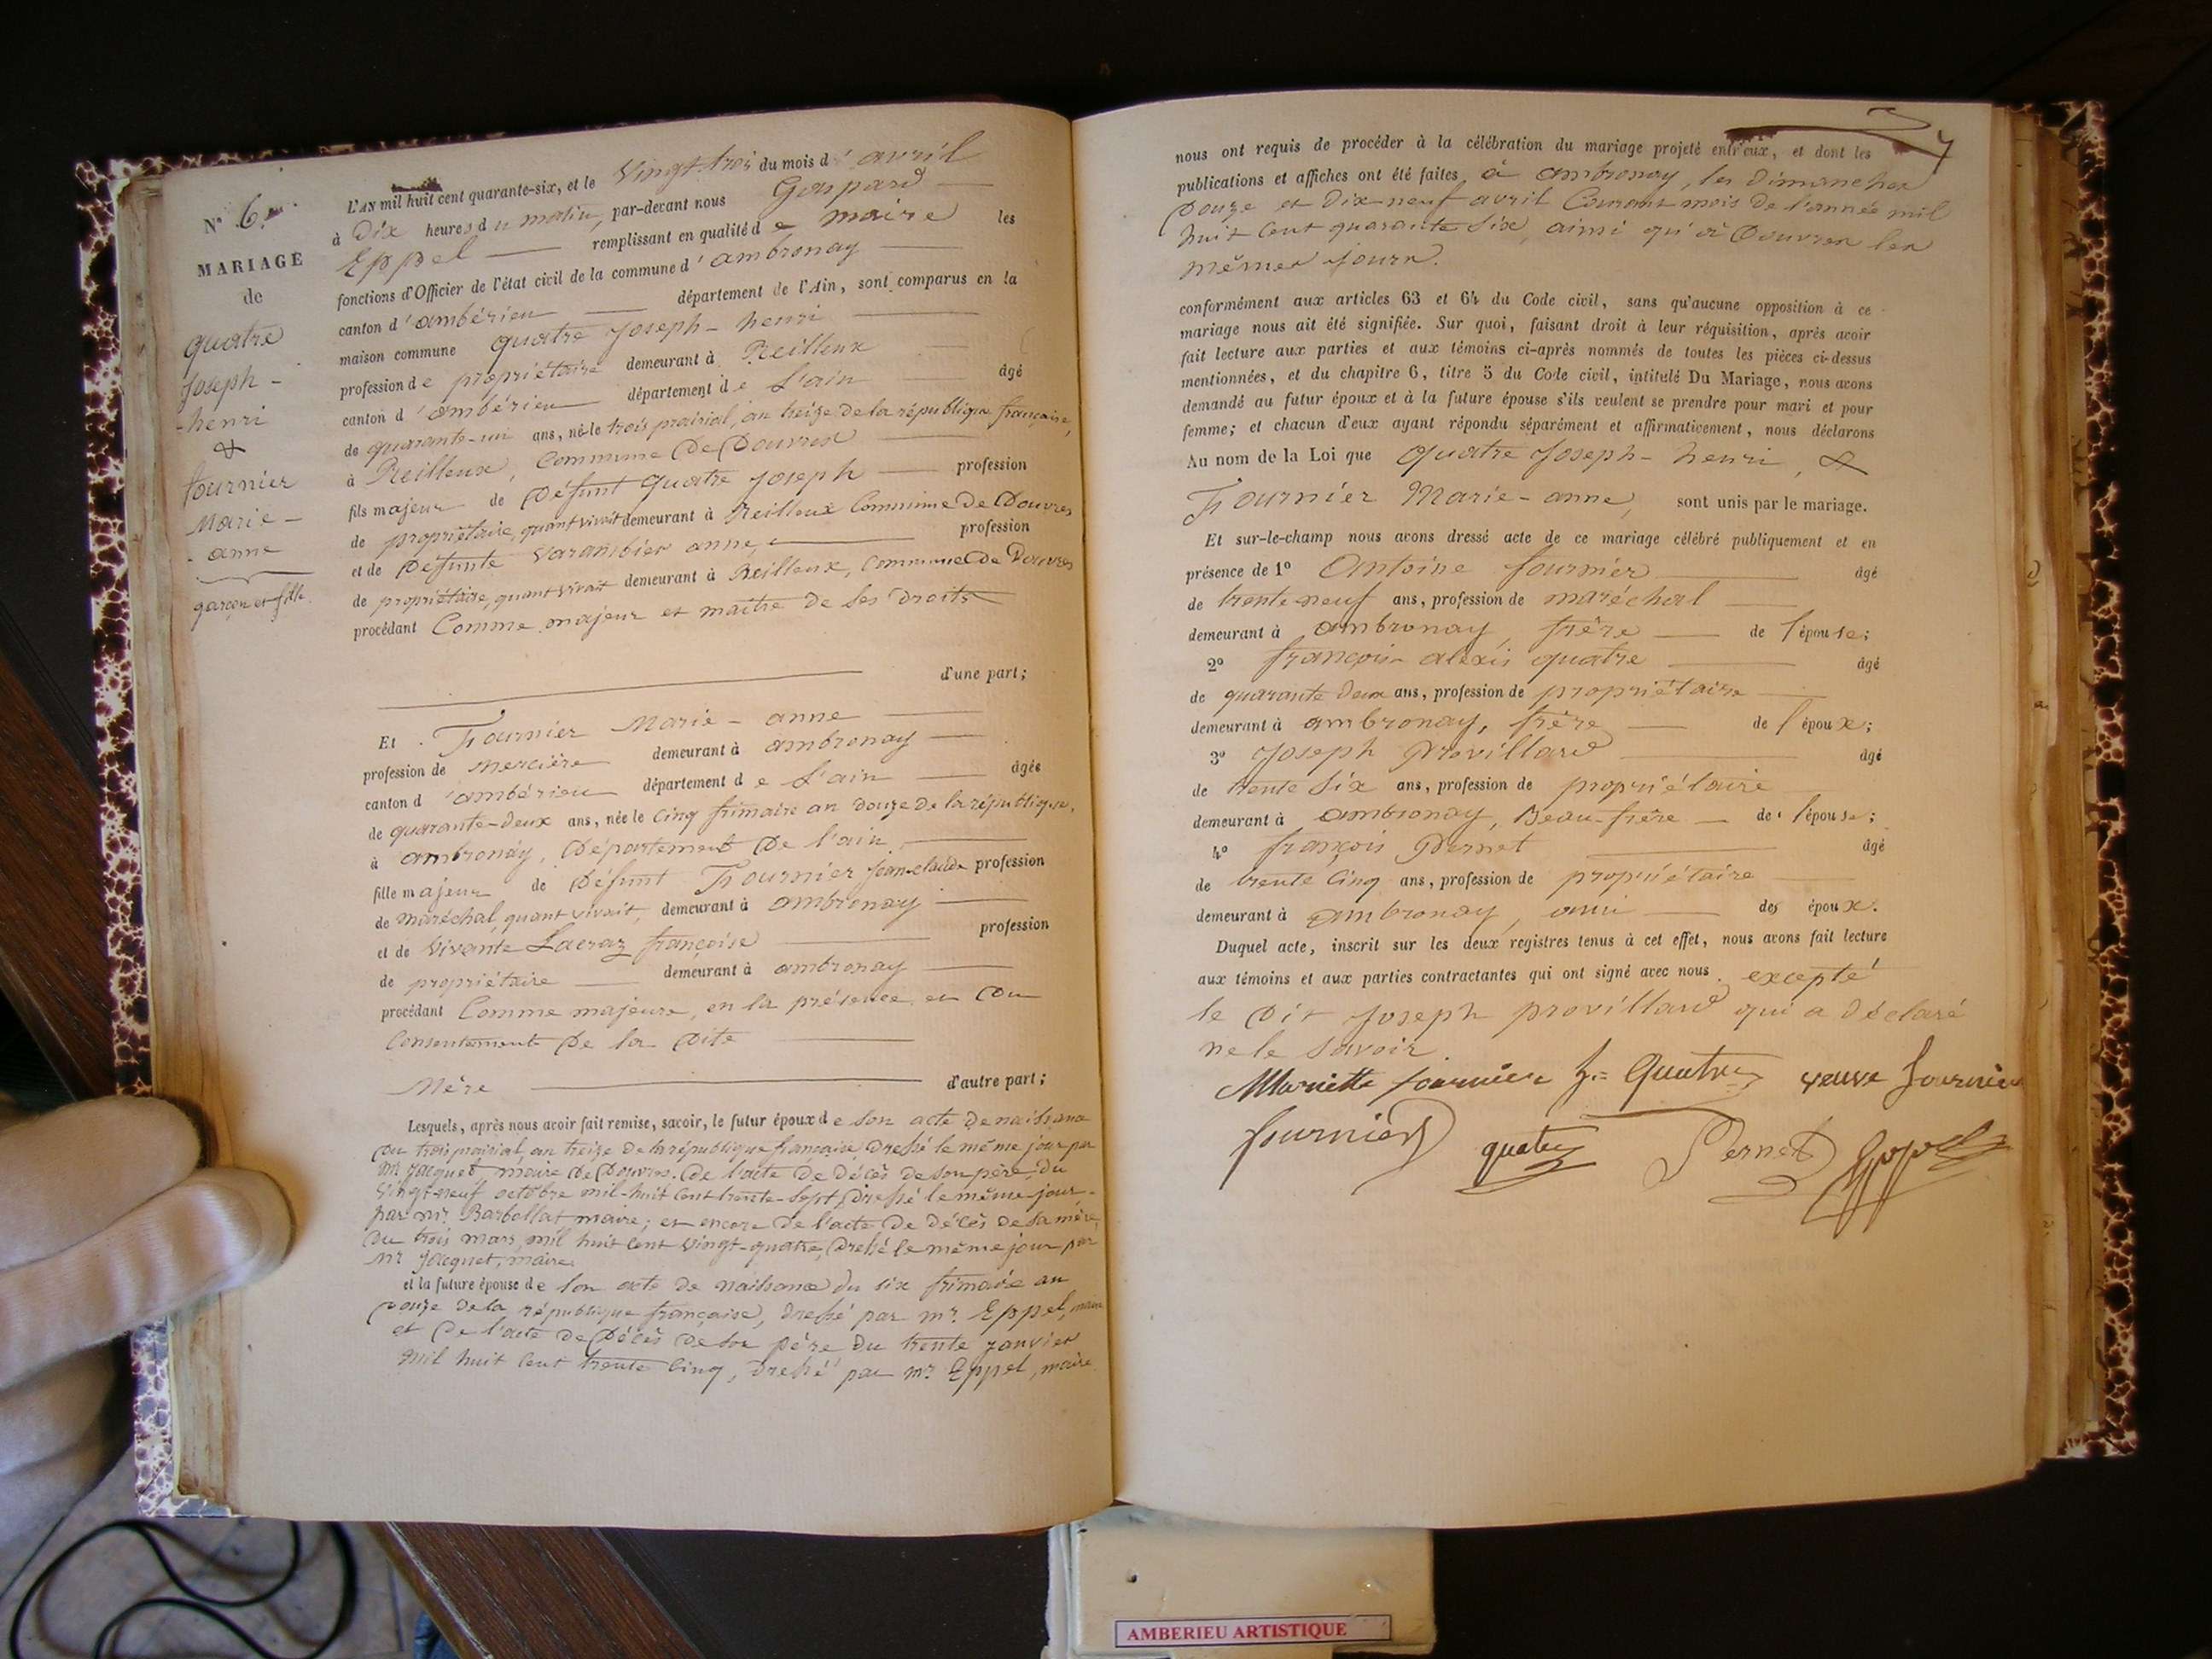 N° 6.
MARIAGE
de
quatre
Joseph -
- henri
&
fournier
Marie -
- anne
garçon et fille.
L'AN mil huit cent quarante-six, et le Vingt trois du mois d' avril
à Dix heures du matin, par-devant nous Gaspard
Eppel remplissant en qualité de maire les
fonctions d'Officier de l'état civil de la commune d' ambronay
canton d' ambérieu département de l'Ain, sont comparus en la
maison commune quatre Joseph - henri
profession de propriétaire demeurant à Reilleux
canton d' ambérieu département de L'ain âgé
de quarante-un ans, né le trois prairial, an treize de la république française,
à Reilleux, Commune De Douvres
fils majeur de Défunt Quatre Joseph profession
de propriétaire, quant vivait demeurant à Reilleux Commune De Douvres
et de Défunte Varambier anne, profession
de propriétaire, quant vivait demeurant à Reilleux, Commune De Douvres
procédant Comme majeur et maître de ses Droits
d'une part;
Et Fournier Marie - anne
profession de Mercière demeurant à ambronay
canton d' ambérieu département de L'ain âgée
de quarante-deux ans, née le cinq frimaire an douze De la république,
à ambronay, Département De l'ain,
fille majeure de Défunt Fournier Jean-claude profession
de maréchal, quant vivait, demeurant à ambronay
et de Vivante Lacraz françoise profession
de propriétaire demeurant à ambronay
procédant Comme majeure, en la présence et Du
Consentement De la Dite
Mère d'autre part;
Lesquels, après nous avoir fait remise, savoir, le futur époux de son acte De naissance
Du trois prairial, an treize De la république française, Dressé le même jour par
mr Jacquet maire De Douvres. De l'acte De décès De son père, du
Vingt-neuf octobre mil-huit Cent trente-Sept, Dressé le même jour
par mr. Barbollat maire; et encore De l'acte De décès De sa mère,
Du trois mars, mil huit Cent Vingt-quatre, Dressé le même jour par
mr Jacquet, maire.
et la future épouse de Son acte De naissance Du six frimaire an
Douze De la république française, Dressé par mr. Eppel, maire
et De l'acte De Décès De son père Du trente janvier
mil huit Cent trente Cinq, Dressé par mr Eppel, maire.
7
nous ont requis de procéder à la célébration du mariage projeté entr'eux, et dont les
publications et affiches ont été faites à ambronay, les Dimanches
Douze et Dix-neuf avril Courant mois De l'année mil
huit Cent quarante Six, ainsi qu'à Douvres les
mêmes jours.
conformément aux articles 63 et 64 du Code civil, sans qu'aucune opposition à ce
mariage nous ait été signifiée. Sur quoi, faisant droit à leur réquisition, après avoir
fait lecture aux parties et aux témoins ci-après nommés de toutes les pièces ci-dessus
mentionnées, et du chapitre 6, titre 5 du Code civil, intitulé Du Mariage, nous avons
demandé au futur époux et à la future épouse s'ils veulent se prendre pour mari et pour
femme; et chacun d'eux ayant répondu séparément et affirmativement, nous déclarons
Au nom de la Loi que Quatre Joseph - henri, &
Fournier Marie - anne, sont unis par le mariage.
Et sur-le-champ nous avons dressé acte de ce mariage célébré publiquement et en
présence de 1° Antoine fournier âgé
de trente-neuf ans, profession de maréchal
demeurant à ambronay, frère de l'épouse;
2° françois alexis quatre âgé
de quarante Deux ans, profession de propriétaire
demeurant à ambronay, frère de l'époux;
3° Joseph Provillard âgé
de trente Six ans, profession de propriétaire
demeurant à ambronay, Beau-frère de l'épouse;
4° françois Pernet âgé
de trente Cinq ans, profession de propriétaire
demeurant à ambronay, ami des époux.
Duquel acte, inscrit sur les deux registres tenus à cet effet, nous avons fait lecture
aux témoins et aux parties contractantes qui ont signé avec nous. excepté
le Dit Joseph provillard qui a Déclaré
ne le Savoir.
Mariette fournier h= Quatre veuve fournier
fournier quatre Pernet Eppel
AMBERIEU ARTISTIQUE